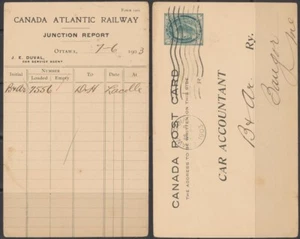 CANADA ATLANTIC RAILWAY
JUNCTION REPORT
OTTAWA, 7-6 1903
J. E. DUVAL,
CAR SERVICE AGENT
Initial
NUMBER
Loaded
Empty
To
At
B&Ar 7556 D&H Lacolle
CANADA POST CARD
THE ADDRESS TO BE WRITTEN ON THIS SIDE
CAR ACCOUNTANT
B & Ar. Ry.
Bangor
Me